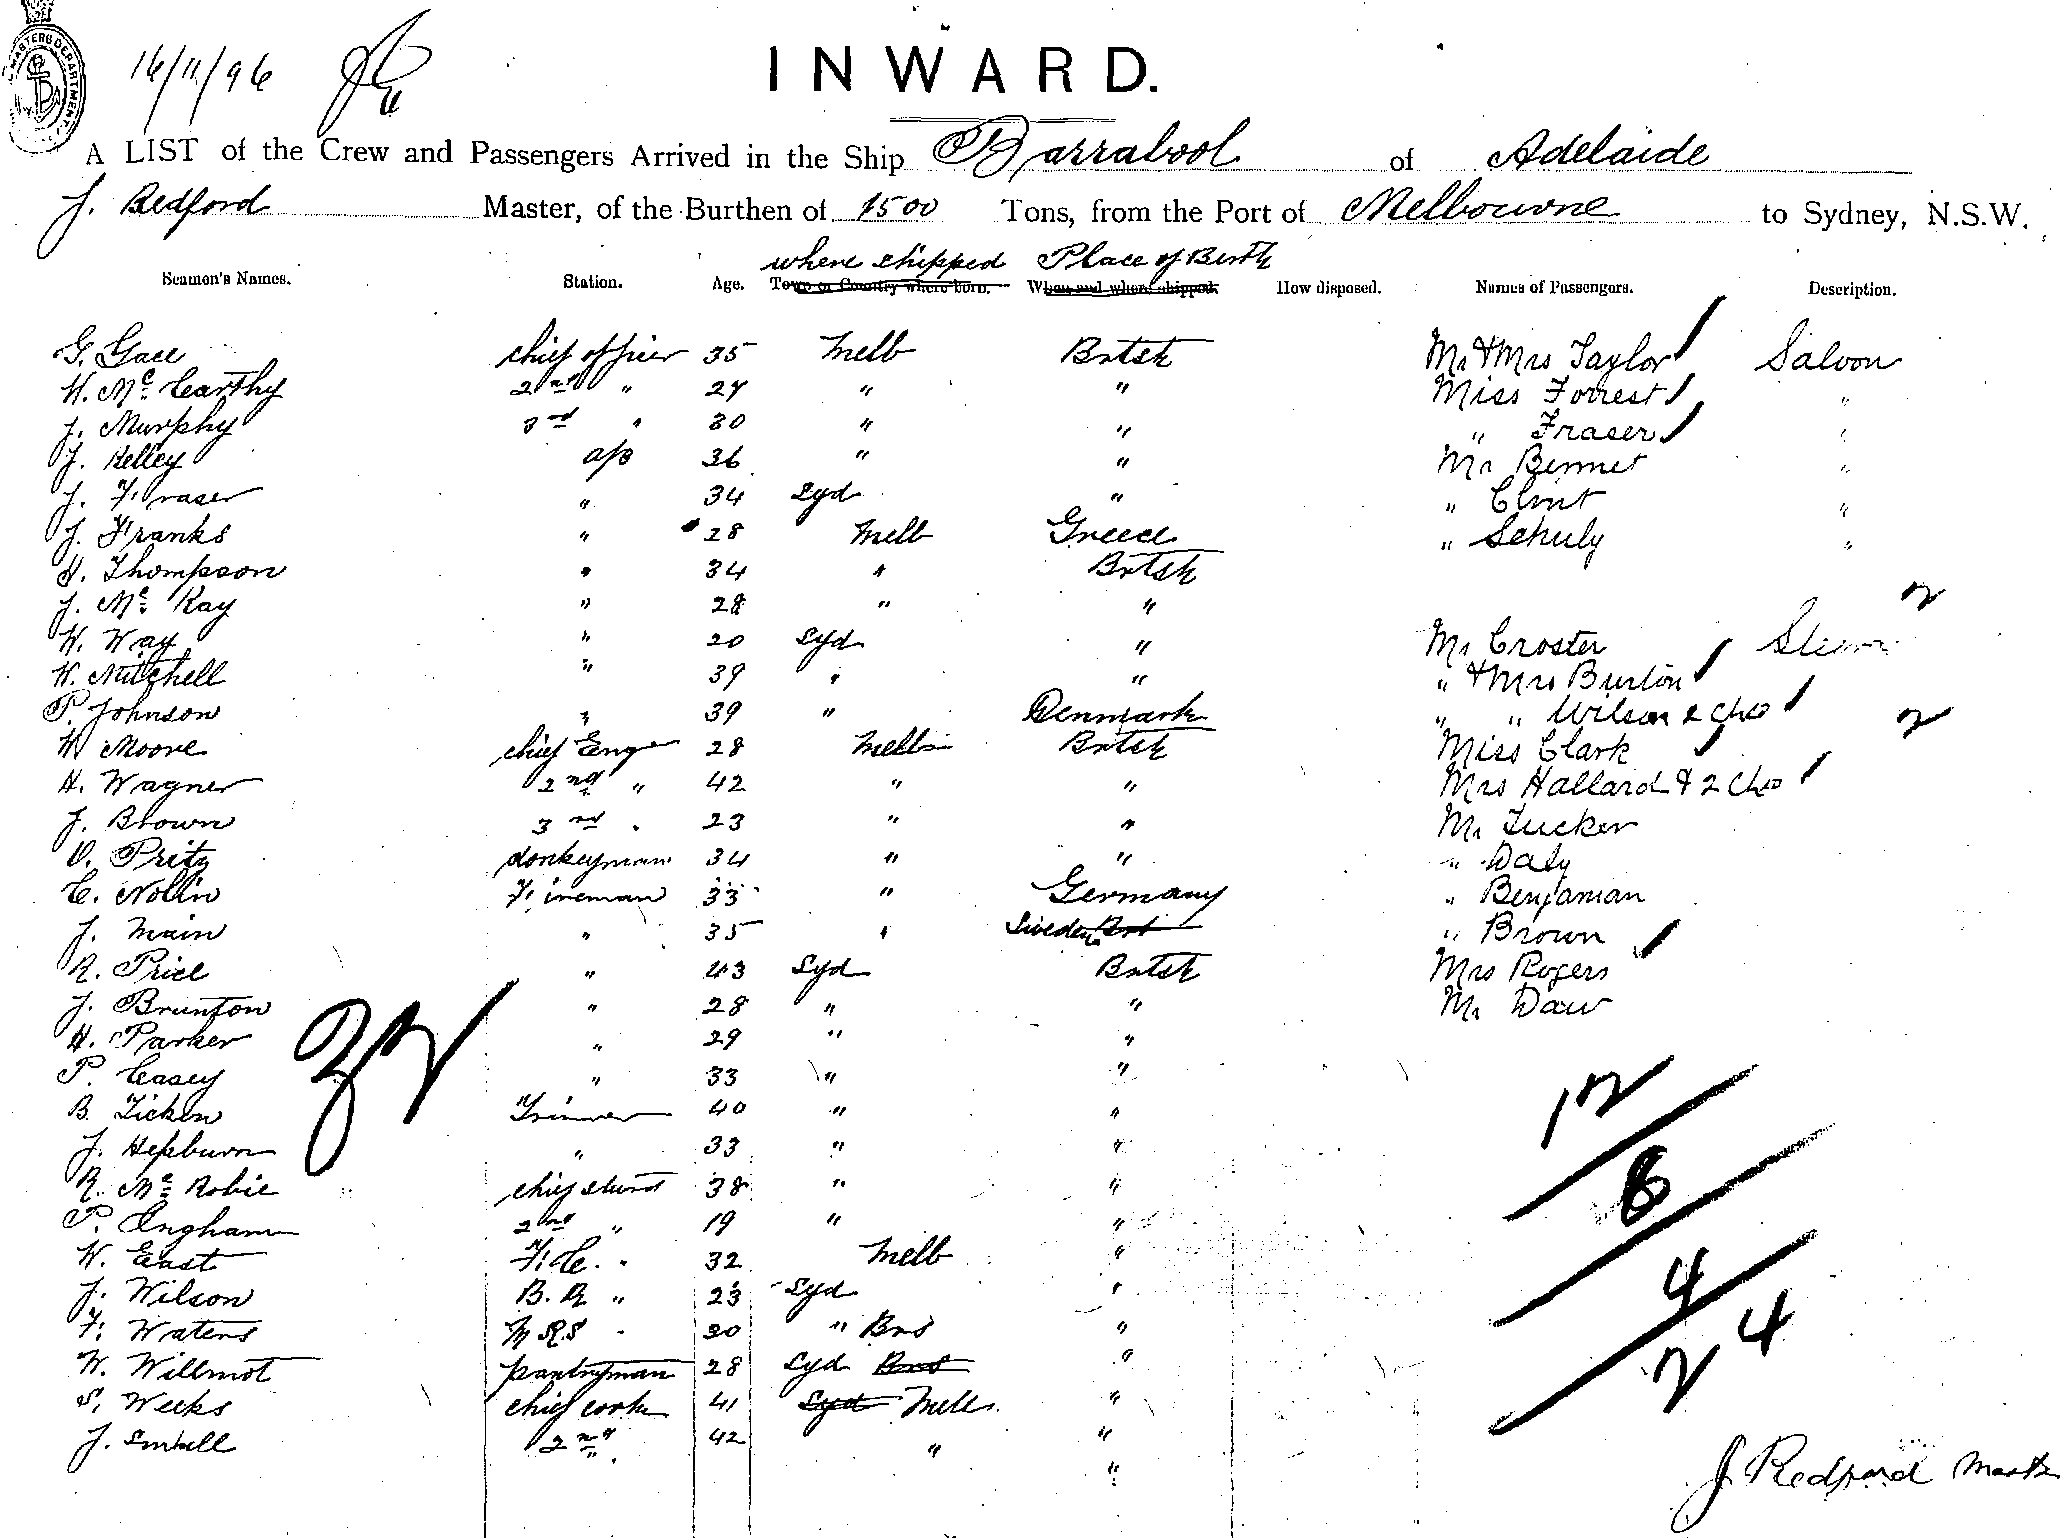 MASTERS DEPARTMENT
16/11/96
INWARD.
A LIST of the Crew and Passengers Arrived in the Ship Barrabool of Adelaide
J. Redford Master, of the Burthen of 1500 Tons, from the Port of Melbourne to Sydney, N.S.W.
where shipped Place of Birth
Seamen's Names. Station. Age. Town or Country where born. When and where shipped. How disposed. Names of Passengers. Description.
G. Gace chief officer 35 Melb Britsh Mr & Mrs Taylor Saloon
W. McCarthy 2nd " 27 " " Miss Forrest "
J. Murphy 3rd " 30 " " " Fraser "
J. Kelley a/b 36 " " Mr Bennet "
J. Fraser " 34 Syd " " Clint "
J. Franks " 28 Melb Greece " Schuly "
H. Thompson " 34 " Britsh
J. Mc Kay " 28 " " 2
W. Way " 20 Syd " Mr Croster
W. Mitchell " 39 " " " & Mrs Burton
P. Johnson " 39 " Denmark " " Wilson & 2 Chd 2
W Moore chief Eng 28 Melb Britsh Miss Clark
H. Wagner 2nd " 42 " " Mrs Hallard & 2 Chd
J. Brown 3rd " 23 " " Mr Tucker
O. Pritz donkeyman 34 " " " Daly
C. Nolin Fireman 33 " Germany " Benjaman
J. Main " 35 " Sweden Brt " Brown
R. Price " 43 Syd Britsh Mrs Rogers
J. Brunton " 28 " " Mr Daw
H. Parker " 29 " "
P. Casey " 33 " "
32
B. Ticken Trimmer 40 " " 12
J. Hepburn " 33 " "
R. Mc Robie chief stwrd 38 " " 8
P. Ingham 2nd " 19 " "
W. East F. C. " 32 Melb " 4
J. Wilson B. R " 23 Syd "
F. Waters M R.S " 20 " Bns " 24
W. Willmot pantryman 28 Syd Bns "
S. Weeks chief cook 41 Syd Melb "
J. Small 2nd " 42 " "
"
J Redford Master